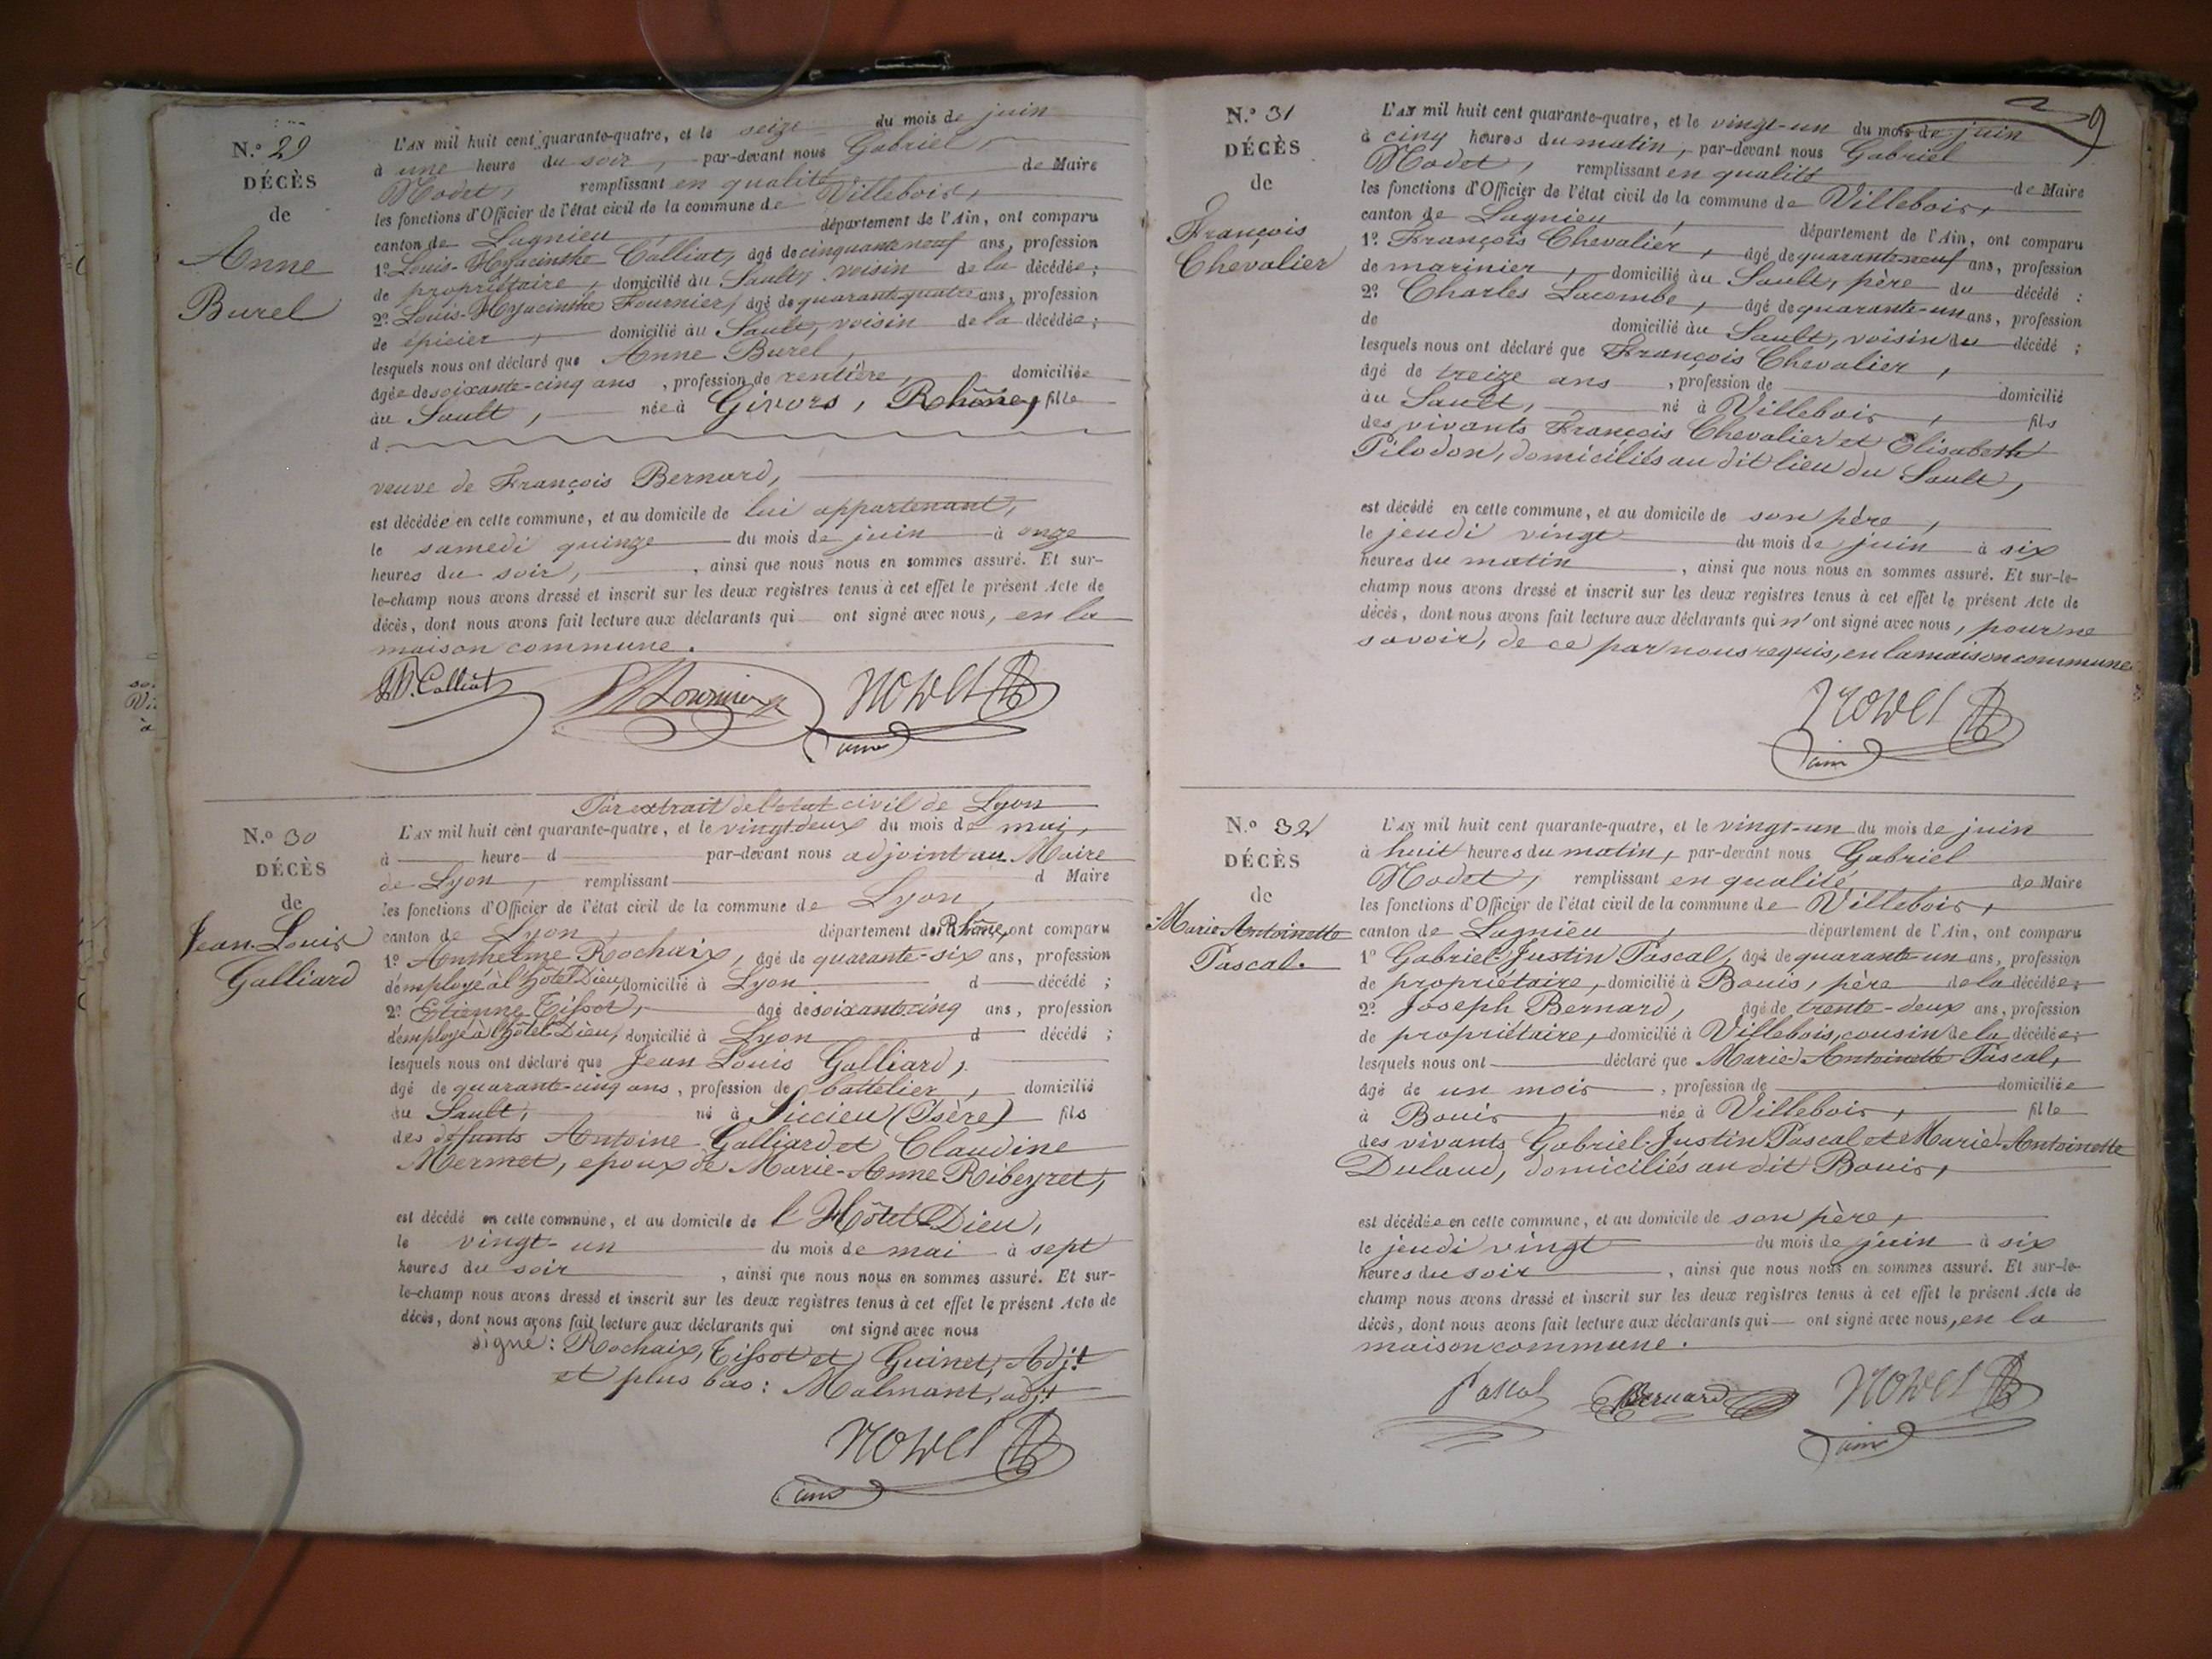 N.° 29
DÉCÈS
de
Anne
Burel
L'AN mil huit cent quarante-quatre, et le seize du mois de juin
à une heure du soir, par-devant nous Gabriel
Nodet, remplissant en qualité de Maire
les fonctions d'Officier de l'état civil de la commune de Villebois,
canton de Lagnieu, département de l'Ain, ont comparu
1.° Louis-Hyacinthe Calliat, âgé de cinquante neuf ans, profession
de propriétaire, domicilié au Sault, voisin de la décédée;
2.° Louis-Hyacinthe Fournier, âgé de quarante quatre ans, profession
de épicier, domicilié au Sault, voisin de la décédée;
lesquels nous ont déclaré que Anne Burel,
âgée de soixante-cinq ans, profession de rentière, domiciliée
au Sault, née à Givors, Rhône, fille
d
veuve de François Bernard,
est décédée en cette commune, et au domicile de lui appartenant,
le samedi quinze du mois de juin à onze
heures du soir, , ainsi que nous nous en sommes assuré. Et sur-
le-champ nous avons dressé et inscrit sur les deux registres tenus à cet effet le présent Acte de
décès, dont nous avons fait lecture aux déclarants qui ont signé avec nous, en la
maison commune.
Calliat Fournier Nodet
maire
N.° 30
DÉCÈS
de
Jean-Louis
Galliard
Par extrait de l'état civil de Lyon
L'AN mil huit cent quarante-quatre, et le vingt deux du mois de mai,
à heure d par-devant nous adjoint au Maire
de Lyon, remplissant d Maire
les fonctions d'Officier de l'état civil de la commune de Lyon,
canton de Lyon, département du Rhône, ont comparu
1.° Anthelme Rochaix, âgé de quarante-six ans, profession
d'employé à l'hôtel Dieu, domicilié à Lyon d décédé;
2.° Etienne Tissot, âgé de soixante cinq ans, profession
d'employé à l'hôtel Dieu, domicilié à Lyon d décédé;
lesquels nous ont déclaré que Jean Louis Galliard,
âgé de quarante-cinq ans, profession de battelier, domicilié
au Sault, né à Siccieu (Isère) fils
des défunts Antoine Galliard et Claudine
Mermet, epoux de Marie-Anne Ribeyret,
est décédé en cette commune, et au domicile de l'Hôtel Dieu,
le vingt-un du mois de mai à sept
heures du soir , ainsi que nous nous en sommes assuré. Et sur-
le-champ nous avons dressé et inscrit sur les deux registres tenus à cet effet le présent Acte de
décès, dont nous avons fait lecture aux déclarants qui ont signé avec nous
signé: Rochaix, Tissot et Guinet, Adj.t
et plus bas: Malmant, adj.t
Nodet
maire
9
N.° 31
DÉCÈS
de
François
Chevalier
L'AN mil huit cent quarante-quatre, et le vingt-un du mois de juin
à cinq heures du matin, par-devant nous Gabriel
Nodet, remplissant en qualité de Maire
les fonctions d'Officier de l'état civil de la commune de Villebois,
canton de Lagnieu, département de l'Ain, ont comparu
1.° François Chevalier, âgé de quarante neuf ans, profession
de marinier, domicilié au Sault, père du décédé:
2.° Charles Lacombe, âgé de quarante-un ans, profession
de domicilié au Sault, voisin du décédé;
lesquels nous ont déclaré que François Chevalier,
âgé de treize ans, profession de domicilié
au Sault, né à Villebois, fils
des vivants François Chevalier et Elisabeth
Pilodon, domiciliés au dit lieu du Sault,
est décédé en cette commune, et au domicile de son père,
le jeudi vingt du mois de juin à six
heures du matin , ainsi que nous nous en sommes assuré. Et sur-le-
champ nous avons dressé et inscrit sur les deux registres tenus à cet effet le présent Acte de
décès, dont nous avons fait lecture aux déclarants qui n'ont signé avec nous, pour ne
savoir, de ce par nous requis, en la maison commune
Nodet
maire
N.° 32
DÉCÈS
de
Marie-Antoinette
Pascal.
L'AN mil huit cent quarante-quatre, et le vingt-un du mois de juin
à huit heures du matin, par-devant nous Gabriel
Nodet, remplissant en qualité de Maire
les fonctions d'Officier de l'état civil de la commune de Villebois,
canton de Lagnieu, département de l'Ain, ont comparu
1.° Gabriel-Justin Pascal, âgé de quarante-un ans, profession
de propriétaire, domicilié à Bouis, père de la décédée;
2.° Joseph Bernard, âgé de trente-deux ans, profession
de propriétaire, domicilié à Villebois, cousin de la décédée;
lesquels nous ont déclaré que Marie-Antoinette Pascal,
âgé de un mois, profession de domiciliée
à Bouis, née à Villebois, fille
des vivants Gabriel-Justin Pascal et Marie-Antoinette
Dulaud, domiciliés au dit Bouis,
est décédée en cette commune, et au domicile de son père,
le jeudi vingt du mois de juin à six
heures du soir , ainsi que nous nous en sommes assuré. Et sur-le-
champ nous avons dressé et inscrit sur les deux registres tenus à cet effet le présent Acte de
décès, dont nous avons fait lecture aux déclarants qui ont signé avec nous, en la
maison commune.
Pascal Bernard Nodet
maire